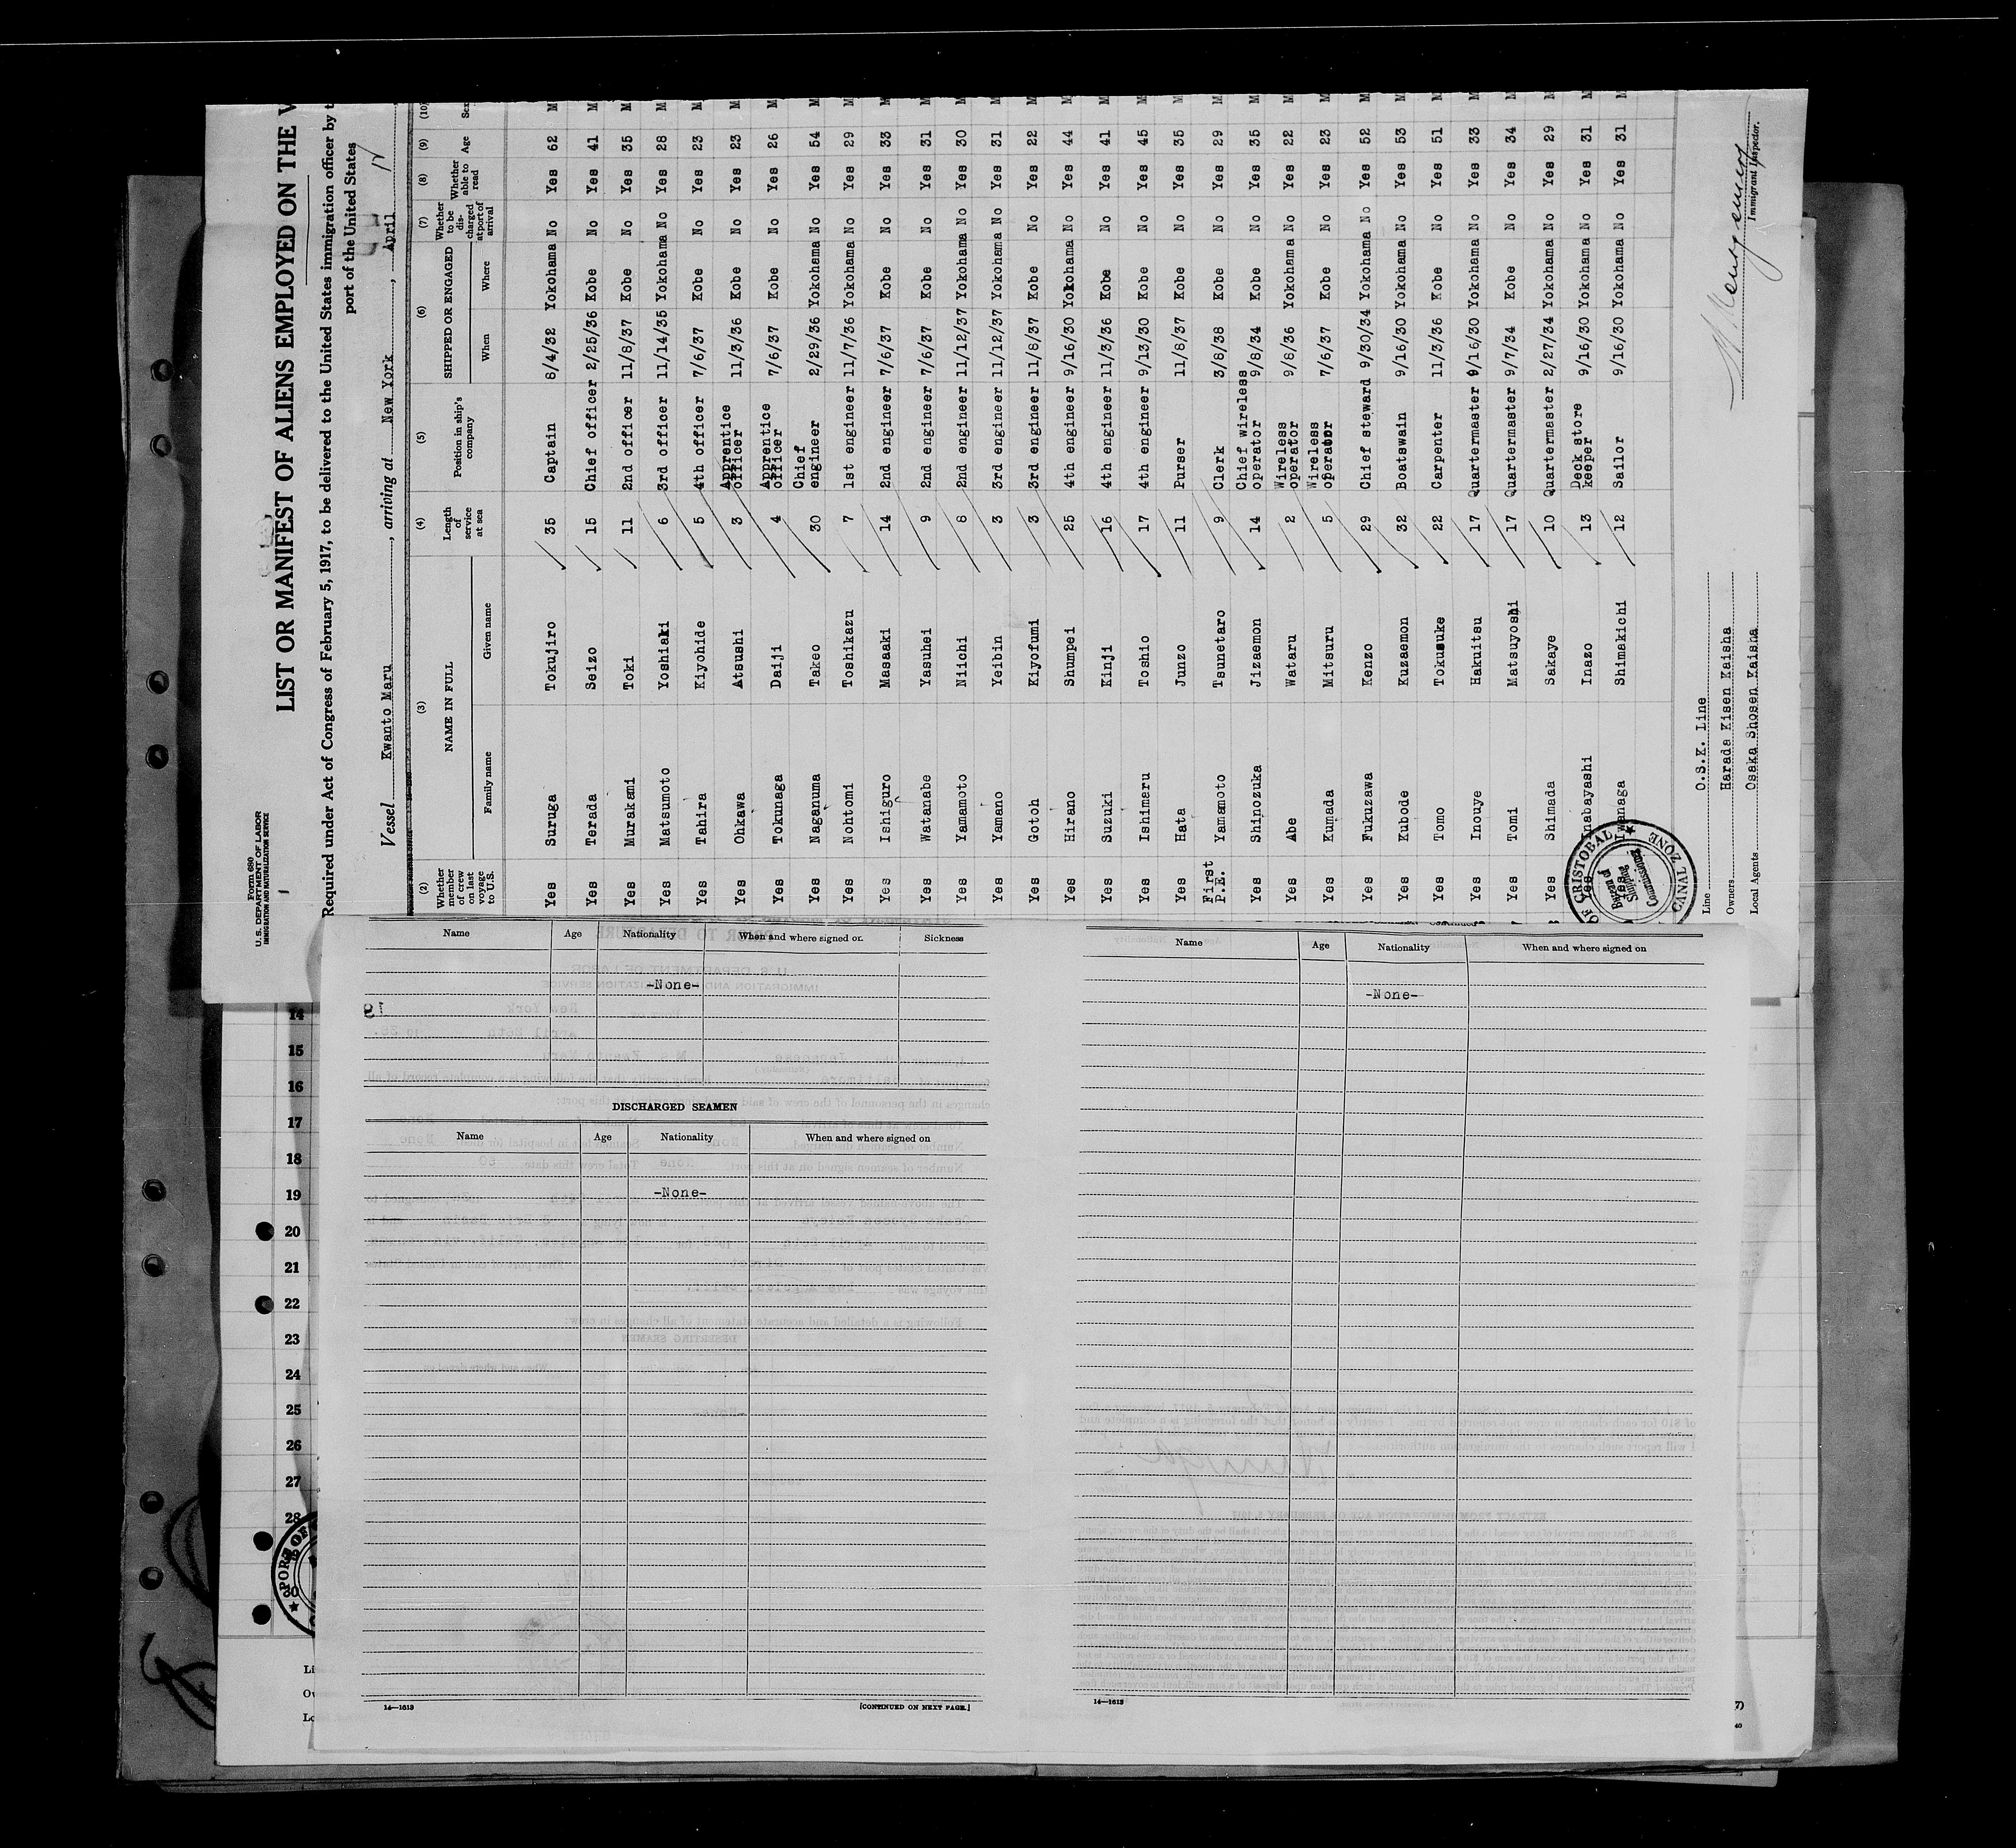 Form 680
U.S. DEPARTMENT OF LABOR
IMMIGRATION AND NATURALIZATION SERVICE
LIST OR MANIFEST OF ALIENS EMPLOYED ON THE
Required under Act of Congress of February 5, 1917, to be delivered to the United States immigration officer by
port of the United States
Vessel Kwanto Maru, arriving at New York, April
(2) (3) (4) (5) (6) (7) (8) (9) (10)
Whether member of crew on last voyage to U.S. NAME IN FULL Family name Given name Length of service at sea Position in ship's company SHIPPED OR ENGAGED When Where Whether to be discharged at port of arrival Whether able to read Age Sex
Yes Suruga Tokujiro 35 Captain 8/4/32 Yokohama No Yes 62 M
Yes Terada Seizo 15 Chief officer 2/25/36 Kobe No Yes 41 M
Yes Murakami Toki 11 2nd officer 11/8/37 Kobe No Yes 35 M
Yes Matsumoto Yoshiaki 6 3rd officer 11/14/35 Yokohama No Yes 28 M
Yes Tahira Kiyohide 5 4th officer 7/6/37 Kobe No Yes 23 M
Yes Ohkawa Atsushi 3 Apprentice officer 11/3/36 Kobe No Yes 23 M
Yes Tokunaga Daiji 4 Apprentice officer 7/6/37 Kobe No Yes 26 M
Yes Naganuma Takeo 30 Chief engineer 2/29/36 Yokohama No Yes 54 M
Yes Nohtomi Toshikazu 7 1st engineer 11/7/36 Yokohama No Yes 29 M
Yes Ishiguro Masaaki 14 2nd engineer 7/6/37 Kobe No Yes 33 M
Yes Watanabe Yasuhei 9 2nd engineer 7/6/37 Kobe No Yes 31 M
Yes Yamamoto Niichi 8 2nd engineer 11/12/37 Yokohama No Yes 30 M
Yes Yamano Yeibin 3 3rd engineer 11/12/37 Yokohama No Yes 31 M
Yes Gotoh Kiyofumi 3 3rd engineer 11/8/37 Kobe No Yes 22 M
Yes Hirano Shumpei 25 4th engineer 9/16/30 Yokohama No Yes 44 M
Yes Suzuki Kinji 16 4th engineer 11/3/36 Kobe No Yes 41 M
Yes Ishimaru Toshio 17 4th engineer 9/13/30 Kobe No Yes 45 M
Yes Hata Junzo 11 Purser 11/8/37 Kobe No Yes 35 M
First P.E. Yamamoto Tsunetaro 9 Clerk 3/8/38 Kobe No Yes 29 M
Yes Shinozuka Jizaemon 14 Chief wireless operator 9/8/34 Kobe No Yes 35 M
Yes Abe Wataru 2 Wireless operator 9/8/36 Yokohama No Yes 22 M
Yes Kumada Mitsuru 5 Wireless operator 7/6/37 Kobe No Yes 23 M
Yes Fukuzawa Kenzo 29 Chief steward 9/30/34 Yokohama No Yes 52 M
Yes Kubode Kuzaemon 32 Boatswain 9/16/30 Yokohama No Yes 53 M
Yes Tomo Tokusuke 22 Carpenter 11/3/36 Kobe No Yes 51 M
Yes Inouye Hakuitsu 17 Quartermaster 9/16/30 Yokohama No Yes 33 M
Yes Tomi Matsuyoshi 17 Quartermaster 9/7/34 Kobe No Yes 34 M
Yes Shimada Sakaye 10 Quartermaster 2/27/34 Yokohama No Yes 29 M
Yes Inabayashi Inazo 13 Deck store keeper 9/16/30 Yokohama No Yes 31 M
Yes Iwanaga Shimakichi 12 Sailor 9/16/30 Yokohama No Yes 31 M
OF CRISTOBAL
Bureau of Shipping Commissioner
CANAL ZONE
Line O.S.K. Line
Owners Harada Kisen Kaisha
Local Agents Osaka Shosen Kaisha
Immigrant Inspector.
Name Age Nationality When and where signed on Sickness
-None-
DISCHARGED SEAMEN
Name Age Nationality When and where signed on
-None-
14—1613
[CONTINUED ON NEXT PAGE.]
Name Age Nationality When and where signed on
-None-
14—1613
14
15
16
17
18
19
20
21
22
23
24
25
26
27
28
30
PORT OF